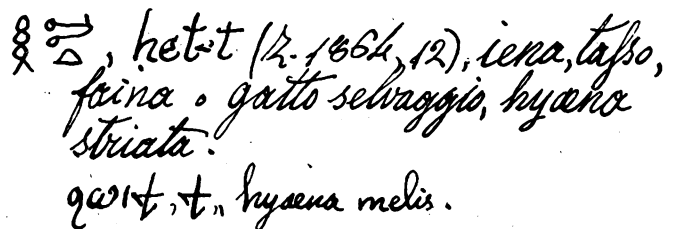 , het-t (Z. 1864, 12), iena, tasso,
faina o gatto selvaggio, hyæna
striata.
ϩⲱⲓϯ, ϯ,, hyæna melis.